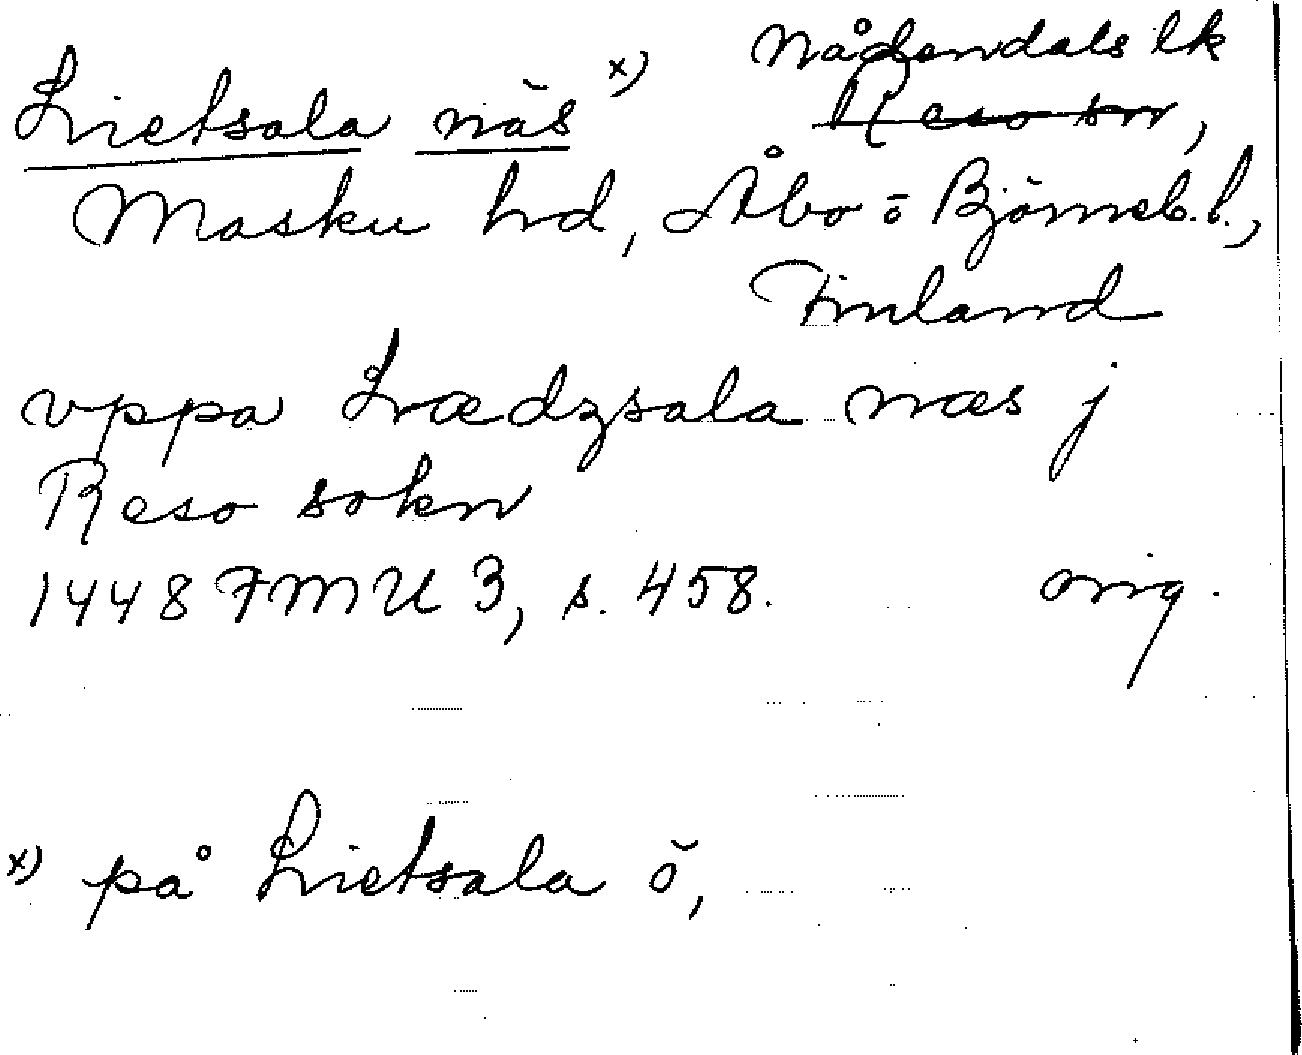 Nådendals lk
Lietsala näs x) Reso sn,
Masku hd, Åbo o Björneb. l.,
Finland
vppa Lædzsala næs j
Reso sokn
1448 FMU 3, s. 458. orig.
x) på Lietsala ö,